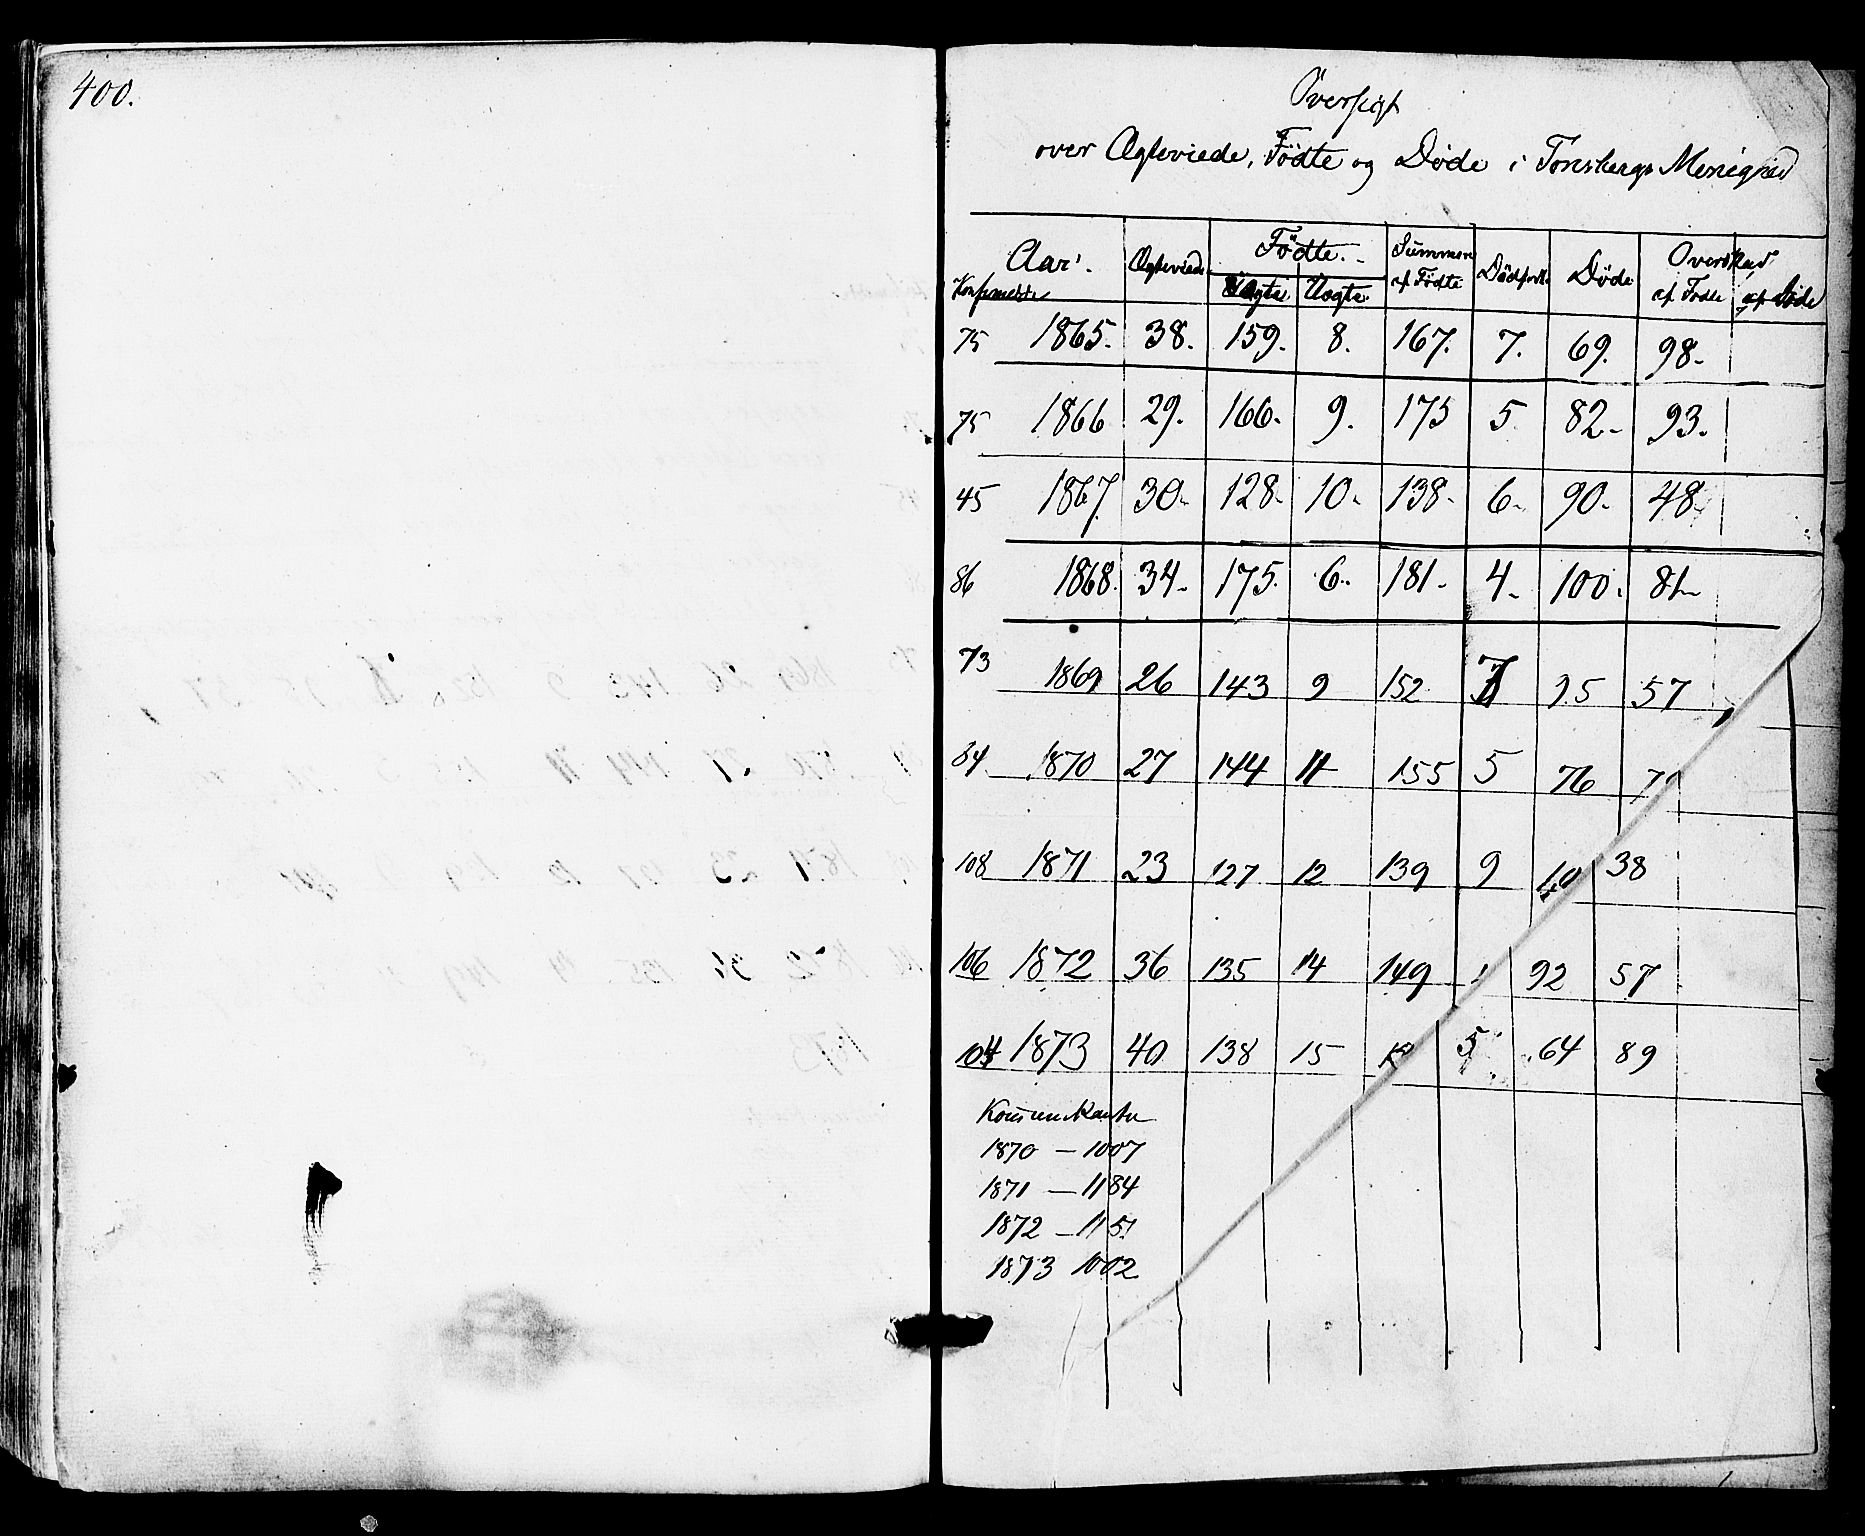 400.
Oversigt
over Ægteviede, Födte og Døde i Tønsbergs Menighed
Aar. Ægteviede Födte. Summen af Födte Dödfødte Døde Overskud
Konfirmerte Ægte Uægte af Fødte af Døde
75 1865. 38. 159. 8. 167. 7. 69. 98-
75 1866 29. 166. 9. 175 5 82- 93.
45 1867 30- 128- 10- 138- 6- 90- 48-
86 1868. 34- 175. 6. 181- 4- 100. 81-
73 1869 26 143 9 152 7 95 57
84 1870 27 144 11 155 5 76
108 1871 23 127 12 139 9 38
106 1872 36 135 14 149 92 57
104 1873 40 138 15 5 64 89
Kommunikanter
1870 — 1007
1871 — 1184
1872 — 1151
1873 1002